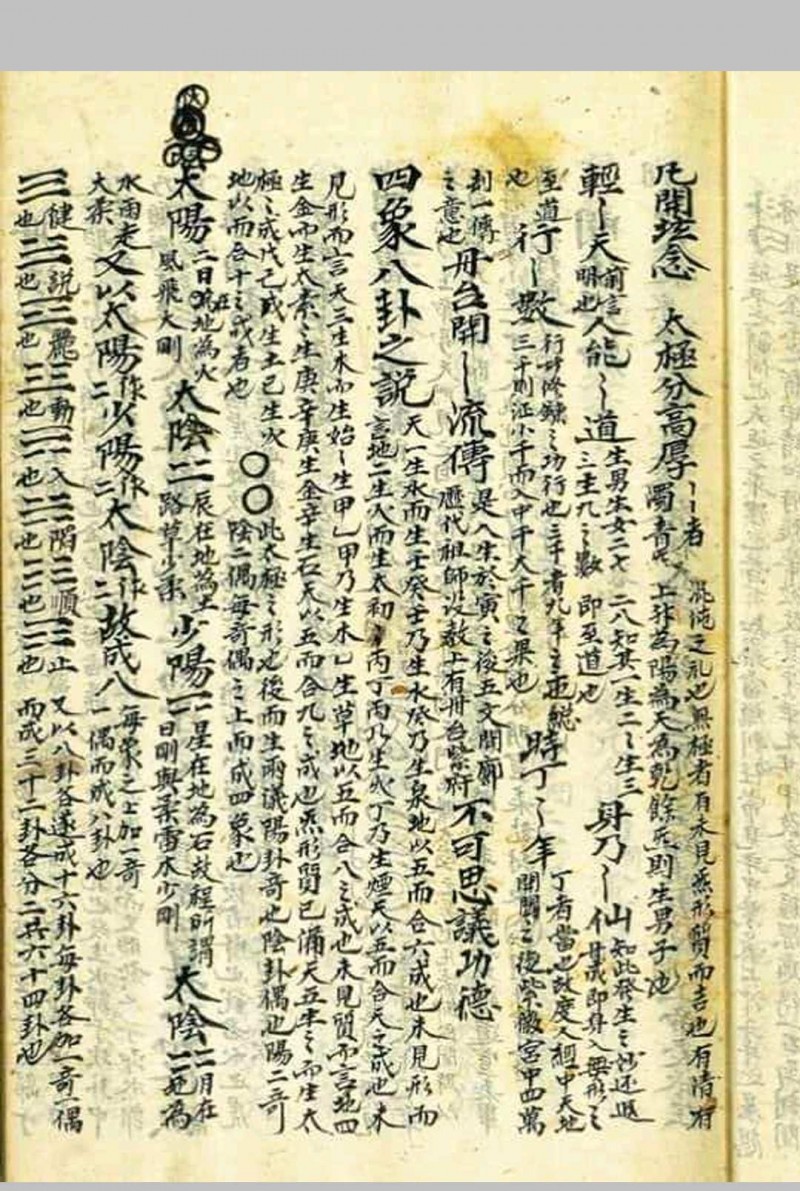 凡開璇念 太極分高厚 〻〻者 混沌之礼也無極者有未見炁形質而言也有清有
濁音 上升為陽為天為乾餘炁則生男子也
輕〻天 前言明也 人能〻道 生男生女二七 二八知其一生二〻生三 三生九之數 即至道也 身乃〻仙 知此發生之妙还返
至道也 行〻數 行此修鍊之功行也三千者九年之 三千則证小千而入中千大千之果也 時丁〻年 丁者當也故度人經中天地 開闢之後紫微宮中四萬
劫一傳之意也 丹台開〻流傳 是人生於寅之後五文開廓 歷代祖師设教上有丹台紫府 不可思議功德
四象八卦之説 天一生水而生壬癸壬乃生水癸乃生泉地以五而合六成也未見形而
言地二生火而生太初〻丙丁丙乃生火丁乃生煙天以五而合七之成也未
見形而言天三生木而生始〻生甲乙甲乃生木乙生草地以五而合八之成也未見質而言地四
生金而生太素之生庚辛庚生金辛生石天以五而合九之成也炁形質已俻天五生之而生太
極之成戊己戊生土己生火 〇 此太極之形也後而生兩儀陽卦奇也陰卦偶也陽二奇
地以而合十之成者也 〇 陰二偶每奇偶之上而成四象也
太陽 二日在地為火 風飛大剛 太陰二 辰在地為土 路草少柔 少陽二 星在地為石故程所谓 日剛與柔雷木少剛 太陰二 二月在
水雨走 大柔 又以太陽二作少陽二作太陰二作故成八 每象之上加一奇 一偶而成八卦也
☰健也 ☱説也 ☲麗也 ☳動也 ☴入也 ☵陷也 ☷順也 ☶止也 又以八卦各遂成十六卦每卦各加一奇一偶
而成三十二卦各分二共六十四卦也